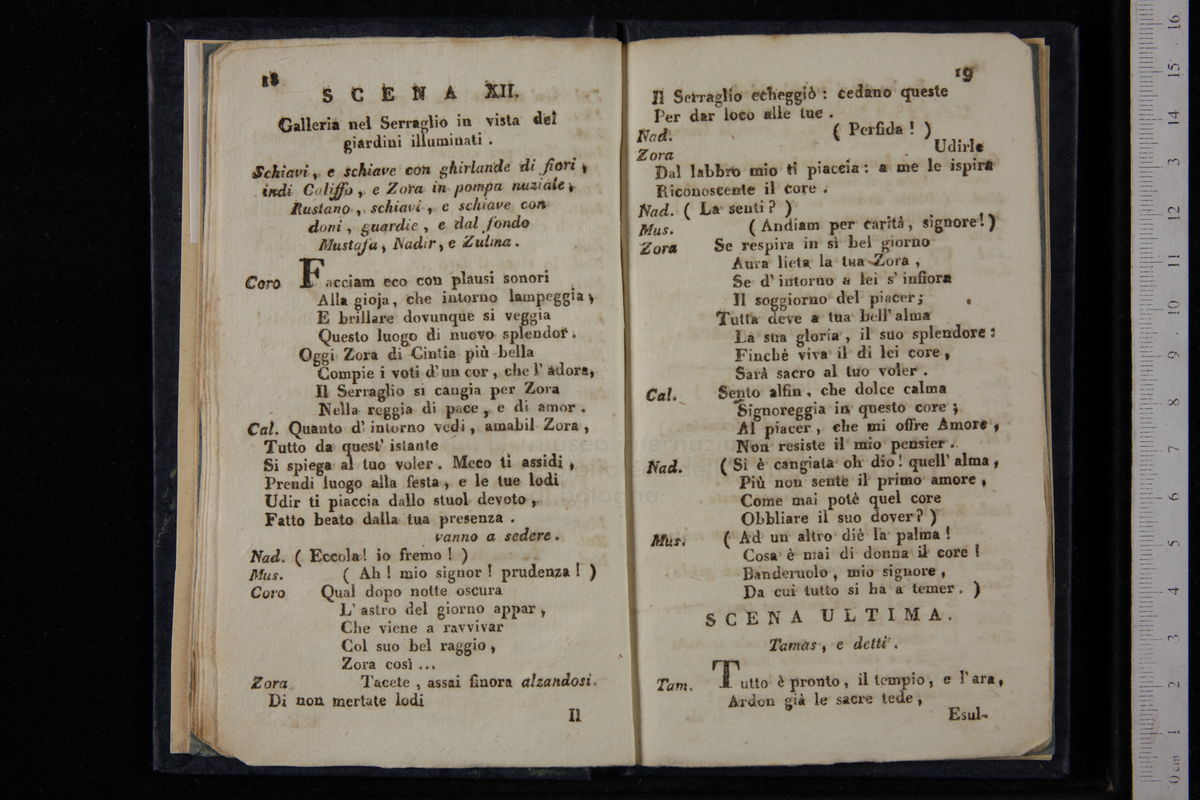 18
SCENA XII.
Galleria nel Serraglio in vista dei
giardini illuminati.
Schiavi, e schiave con ghirlande di fiori,
indi Califfo, e Zora in pompa nuziale,
Rustano, schiavi, e schiave con
doni, guardie, e dal fondo
Mustafa, Nadir, e Zulma.
Coro Facciam eco con plausi sonori
Alla gioja, che intorno lampeggia,
E brillare dovunque si veggia
Questo luogo di nuovo splendor.
Oggi Zora di Cintia più bella
Compie i voti d'un cor, che l'adora,
Il Serraglio si cangia per Zora
Nella reggia di pace, e di amor.
Cal. Quanto d'intorno vedi, amabil Zora,
Tutto da quest' istante
Si spiega al tuo voler. Meco ti assidi,
Prendi luogo alla festa, e le tue lodi
Udir ti piaccia dallo stuol devoto,
Fatto beato dalla tua presenza.
vanno a sedere.
Nad. (Eccola! io fremo!)
Mus. (Ah! mio signor! prudenza!)
Coro Qual dopo notte oscura
L'astro del giorno appar,
Che viene a ravvivar
Col suo bel raggio,
Zora così...
Zora Tacete, assai finora alzandosi.
Di non mertate lodi
Il
19
Il Serraglio echeggiò: cedano queste
Per dar loco alle tue.
Nad. (Perfida!)
Zora Udirle
Dal labbro mio ti piaccia: a me le ispira
Riconoscente il core.
Nad. (La senti?)
Mus. (Andiam per carità, signore!)
Zora Se respira in sì bel giorno
Aura lieta la tua Zora,
Se d'intorno a lei s'infiora
Il soggiorno del piacer;
Tutta deve a tua bell'alma
La sua gloria, il suo splendore:
Finchè viva il di lei core,
Sarà sacro al tuo voler.
Cal. Sento alfin, che dolce calma
Signoreggia in questo core;
Al piacer, che mi offre Amore,
Non resiste il mio pensier.
Nad. (Si è cangiata oh dio! quell'alma,
Più non sente il primo amore,
Come mai potè quel core
Obbliare il suo dover?)
Mus. (Ad un altro diè la palma!
Cosa è mai di donna il core!
Banderuolo, mio signore,
Da cui tutto si ha a temer.)
SCENA ULTIMA.
Tamas, e detti.
Tam. Tutto è pronto, il tempio, e l'ara,
Ardon già le sacre tede,
Esul-
16
15
14
13
12
11
10
9
8
7
6
5
4
3
2
1
0 cm